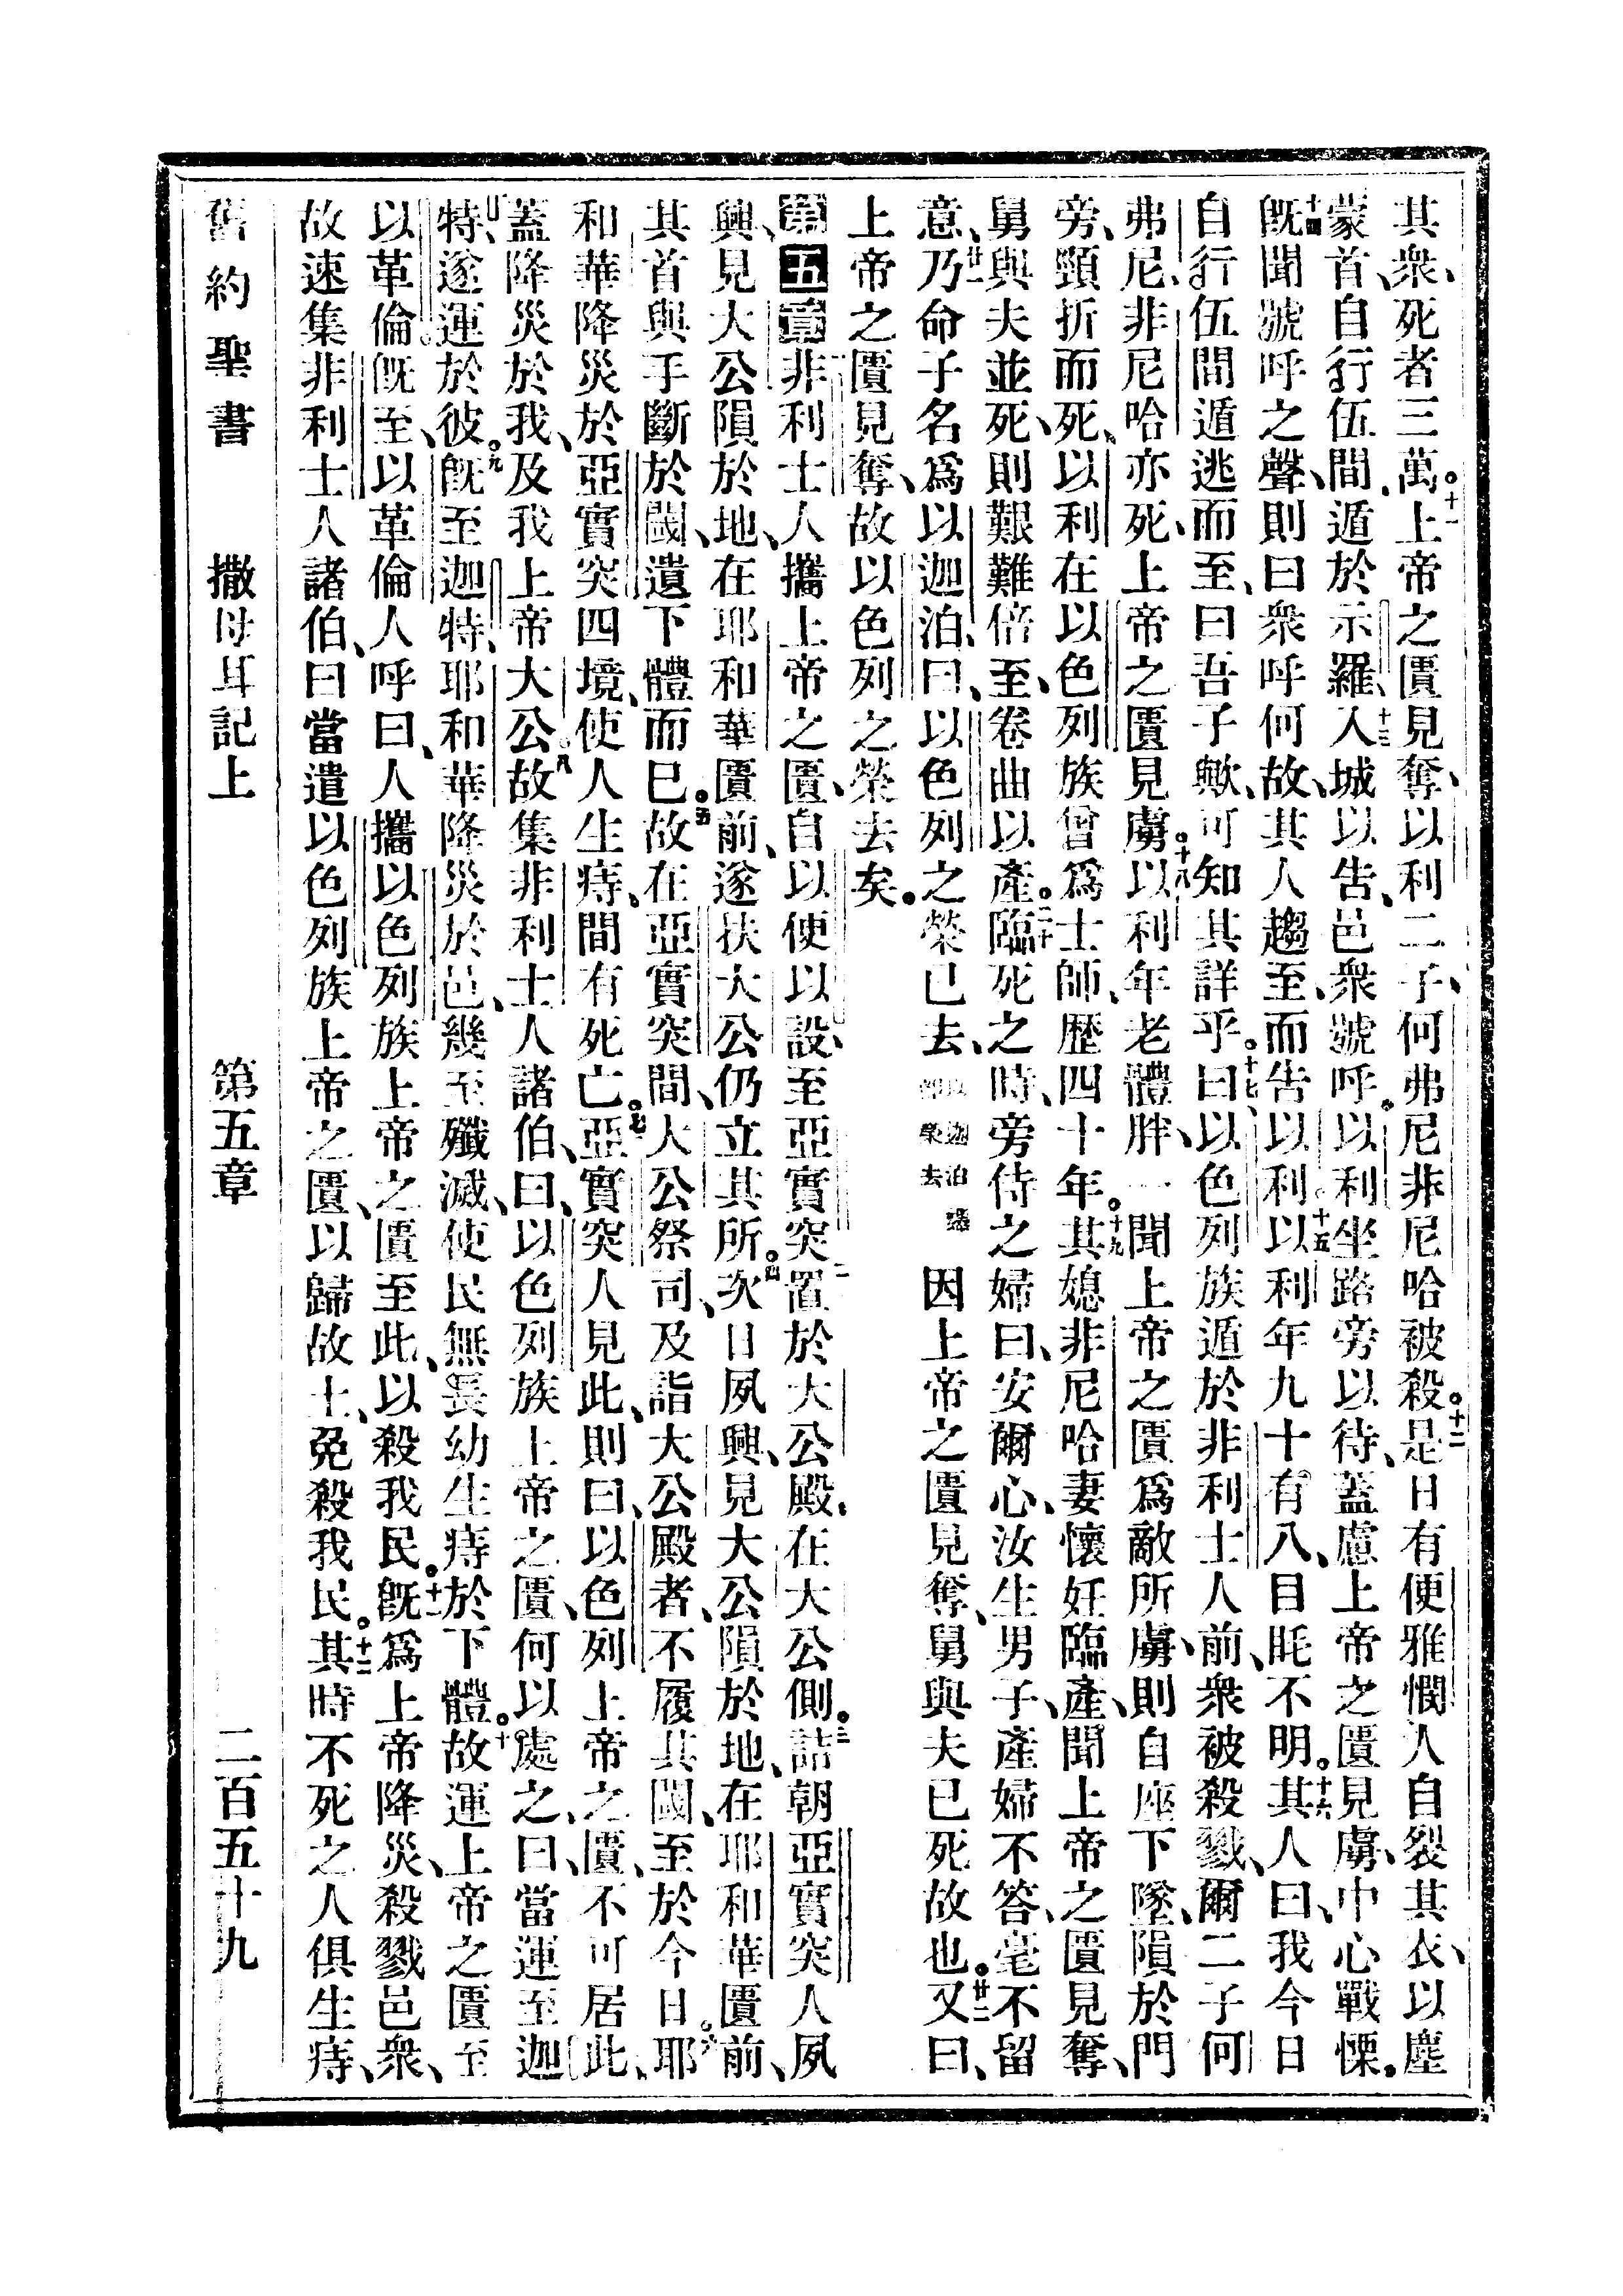 其衆、死者三萬。十一上帝之匱見奪、以利二子、何弗尼非尼哈被殺。十二是日有便雅憫人自裂其衣、以塵
蒙首、自行伍間、遁於示羅、十三入城以告、邑衆號呼。以利坐路旁以待、蓋慮上帝之匱見虜、中心戰慄。
十四旣聞號呼之聲、則曰衆呼何故、其人趨至、而告以利。十五以利年九十有八、目眊不明。十六其人曰、我今日
自行伍間遁逃而至、曰吾子歟、可知其詳乎。十七曰、以色列族遁於非利士人前、衆被殺戮、爾二子何
弗尼、非尼哈亦死、上帝之匱見虜。十八以利年老體胖、一聞上帝之匱爲敵所虜、則自座下墜、隕於門
旁、頸折而死、以利在以色列族曾爲士師、歷四十年。十九其媳非尼哈妻懷妊臨產、聞上帝之匱見奪、
舅與夫並死、則艱難倍至、卷曲以產。二十臨死之時、旁侍之婦曰、安爾心、汝生男子、產婦不答、毫不留
意、廿一乃命子名爲以迦泊、曰、以色列之榮已去、以迦泊譯卽榮去因上帝之匱見奪、舅與夫已死故也。廿二又曰、
上帝之匱見奪、故以色列之榮去矣。
第五章 一非利士人攜上帝之匱、自以便以設、至亞實突、二置於大公殿、在大公側。三詰朝亞實突人夙
興、見大公隕於地、在耶和華匱前、遂扶大公、仍立其所。四次日夙興、見大公隕於地、在耶和華匱前、
其首與手斷於閾、遺下體而已。五故在亞實突間、大公祭司、及詣大公殿者、不履其閾、至於今日。六耶
和華降災於亞實突四境、使人生痔、間有死亡。七亞實突人見此、則曰、以色列上帝之匱、不可居此、
蓋降災於我、及我上帝大公。八故集非利士人諸伯、曰、以色列族上帝之匱、何以處之、曰、當運至迦
特、遂運於彼。九旣至迦特、耶和華降災於邑、幾至殲滅、使民無長幼生痔於下體。十故運上帝之匱至
以革倫。旣至、以革倫人呼曰、人攜以色列族上帝之匱至此、以殺我民。十一旣爲上帝降災、殺戮邑衆、
故速集非利士人諸伯、曰當遣以色列族上帝之匱、以歸故土、免殺我民。十二其時不死之人俱生痔、
舊約聖書 撒母耳記上 第五章 二百五十九